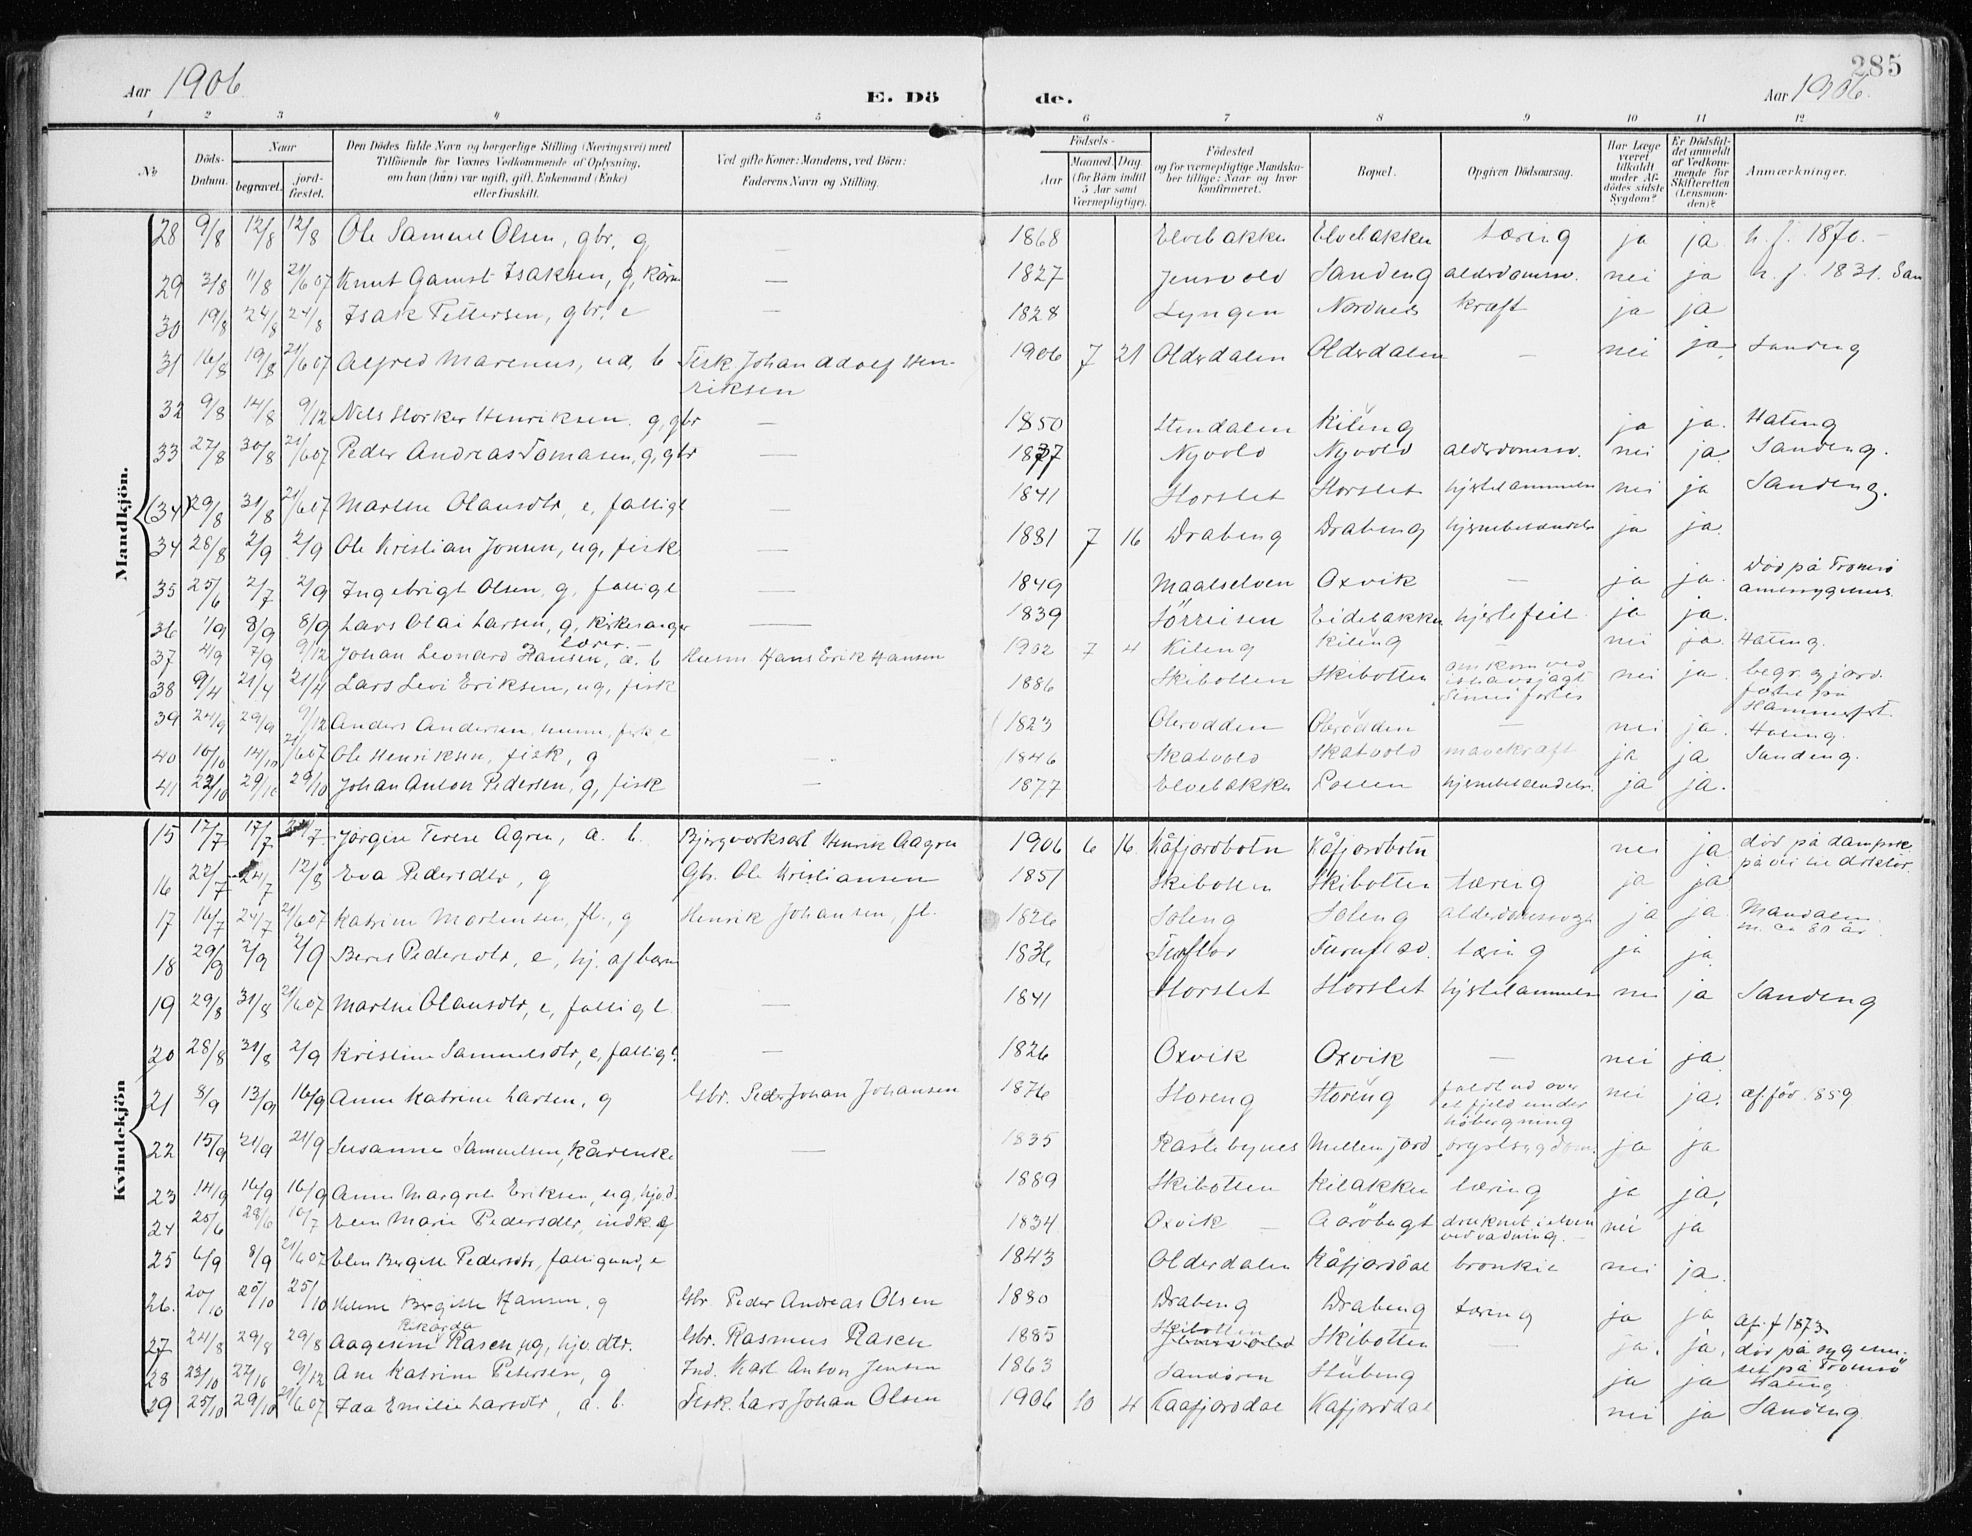 285
Aar 1906. E. Dö de. Aar 1906.
1 2 3 4 5 6 7 8 9 10 11 12
No
Döds-Datum.
Naar
begravet. jord-fæstet.
Den Dödes fulde Navn og borgerlige Stilling (Næringsvei) med
Tilföiende for Voxnes Vedkommende af Oplysning,
om han (hun) var ugift, gift, Enkemand (Enke)
eller fraskilt.
Ved gifte Koner: Mandens, ved Börn:
Faderens Navn og Stilling.
Födsels-
Aar Maaned Dag
(for Börn indtil
5 Aar samt
Værnepligtige).
Födested
og for værnepligtige Mandska-
ber tillige: Naar og hvor
konfirmeret.
Bopæl.
Opgiven Dödsaarsag.
Har Læge
været
tilkaldt
under Af-
dödes sidste
Sygdom?
Er Dödsfal-
det anmeldt
af Vedkom-
mende for
Skifteretten
(Lensman-
den)?
Anmærkninger.
Mandkjön.
28 9/8 12/8 12/8 Ole Samuel Olsen, gbr, g — 1868 Elvebakken Elvebakken tæring ja ja n. f. 1870. —
29 3/8 11/8 21/6 07 Knut Gamst Isaksen, g, kårm — 1827 Jensvold Sandeng alderdomssv. nei ja n. f. 1831. San
30 19/8 24/8 24/8 Isak Pettersen, gbr, e — 1828 Lyngen Nordnes kraft ja ja
31 16/8 19/8 21/6 07 Alfred Marenius, ud, b Fisk Johan Adolf Hen-
riksen 1906 7 21 Olderdalen Olderdalen — nei ja. Sandeng
32 9/8 14/8 9/12 Nils Storker Henriksen g, gbr — 1850 Stendalen Kileng ja ja. Hateng
33 27/8 30/8 21/6 07 Peder Andreas Tomasen, g, gbr — 1837 Nyvold Nyvold alderdomssv. nei ja. Sandeng.
(34) 29/8 31/8 21/6 07 Marthe Olausdtr, e, fattigl — 1841 Horslet Horslet hjertelammelse nei ja Sandeng.
34 28/8 2/9 2/9 Ole Kristian Jonsen, ug, fisk — 1881 7 16 Drabeng Drabeng hjernebetændelse ja ja.
35 25/6 2/7 2/9 Ingebrigt Olsen, g, fattigl — 1849 Maalselven Oxvik — ja ja. död på Tromsö
amtssygehus.
36 1/9 8/9 8/9 Lars Olai Larsen, g, kirkesanger
lærer. — 1839 Sörreisen Eidebakken hjertefeil ja ja.
37 4/9 7/9 9/12 Johan Leonard Hansen, æ. b Husm Hans Erik Hansen 1902 7 4 Kileng Kileng — nei ja. Hateng.
38 9/4 21/4 21/4 Lars Levi Eriksen, ug, fisk 1886 Skibotten Skibotten omkom ved
ishavsjagt nei ja. begr. og jord.
fæstet på
Hammerfest.
39 24/9 29/9 9/12 Anders Andersen, husm, fisk, e 1823 Olerodden Olerodden — nei ja. Hateng.
40 10/10 14/10 21/6 07 Ole Henriksen, fisk, g — 1846 Skatvold Skatvold mavekraft ja ja Sandeng.
41 22/10 29/10 29/10 Johan Anton Pedersen, g, fisk — 1877 Elvebakken Lossen hjernebetændelse ja ja.
Kvindekjön
15 17/7 17/7 Jørgine Terese Agren, æ. b. Bjergverksarb Henrik Aagren 1906 6 16. Kåfjordbotn Kåfjordbotn nei ja död på dampsk.
på vei til doktor.
16 22/7 24/7 12/8 Eva Pedersdtr, g Gbr. Ole Kristiansen 1851 Skibotten Skibotten tæring ja ja
17 16/7 24/7 21/6 07 Katrine Mortensen, fl, g Henrik Johansen, fl. 1826 Soleng Soleng ja ja Mandalen.
n. ca 80 år
18 29/8 2/9 2/9 Beret Pedersdtr, e, hj. af børn 1836 Furuflod. tæring ja ja.
19 29/8 31/8 21/6 07 Marthe Olausdtr, e, fattigl. — 1841 Horslet Horslet hjertelammelse nei ja Sandeng
20 28/8 31/8 2/9 Kristine Samuelsdtr, e, fattigl. — 1826 Oxvik Oxvik — nei ja
21 8/9 13/9 16/9 Anne Katrine Larsen, g Gbr. Peder Johan Johansen 1876 Storeng Storeng faldt ud over
et fjeld under
höbergning nei ja. af. föd. 1859
22 15/9 21/9 21/9 Susanne Samuelsen, kårenke — 1835 Rastebynes Mellemjord brystsygdom. ja ja
23 14/9 16/9 16/9 Anne Margret Eriksen, ug, hjv.d. 1889 Skibotten Kilakken tæring ja ja.
24 25/6 28/6 10/7 Elen Marie Pedersdtr, indk. g 1834 Oxvik — Aaröbugt druknet i elven
ved vadning. — nei ja
25 6/9 8/9 21/6 07 Elen Bergitte Pedersdtr, fattigund, e 1843 Olderdalen Kåfjorddal bronkit nei ja.
26. 20/10 25/10 25/10 Helene Bergitte Hansen, g Gbr Peder Andreas Olsen 1880 Drabeng Drabeng tæring ja ja
27 24/8 29/8 29/8 Rikarda
Aagesine Rasen, ug, hjv. dtr. Gbr. Rasmus Rasen 1885 Skibotten
Jensvold Skibotten — ja. ja. af. f 1873
död på sygehu-
set på Tromsö
28 23/10 27/10 9/12 Ane Katrine Petersen, g Ind. Karl Anton Jensen 1863 Sandören Stubeng ja ja Hateng
29 25/10 29/10 21/6 07 Ida Emilie Larsdtr, æ. b. Fisk. Lars Johan Olsen 1906 10 4 Kaafjorddal Kafjorddal nei ja Sandeng.